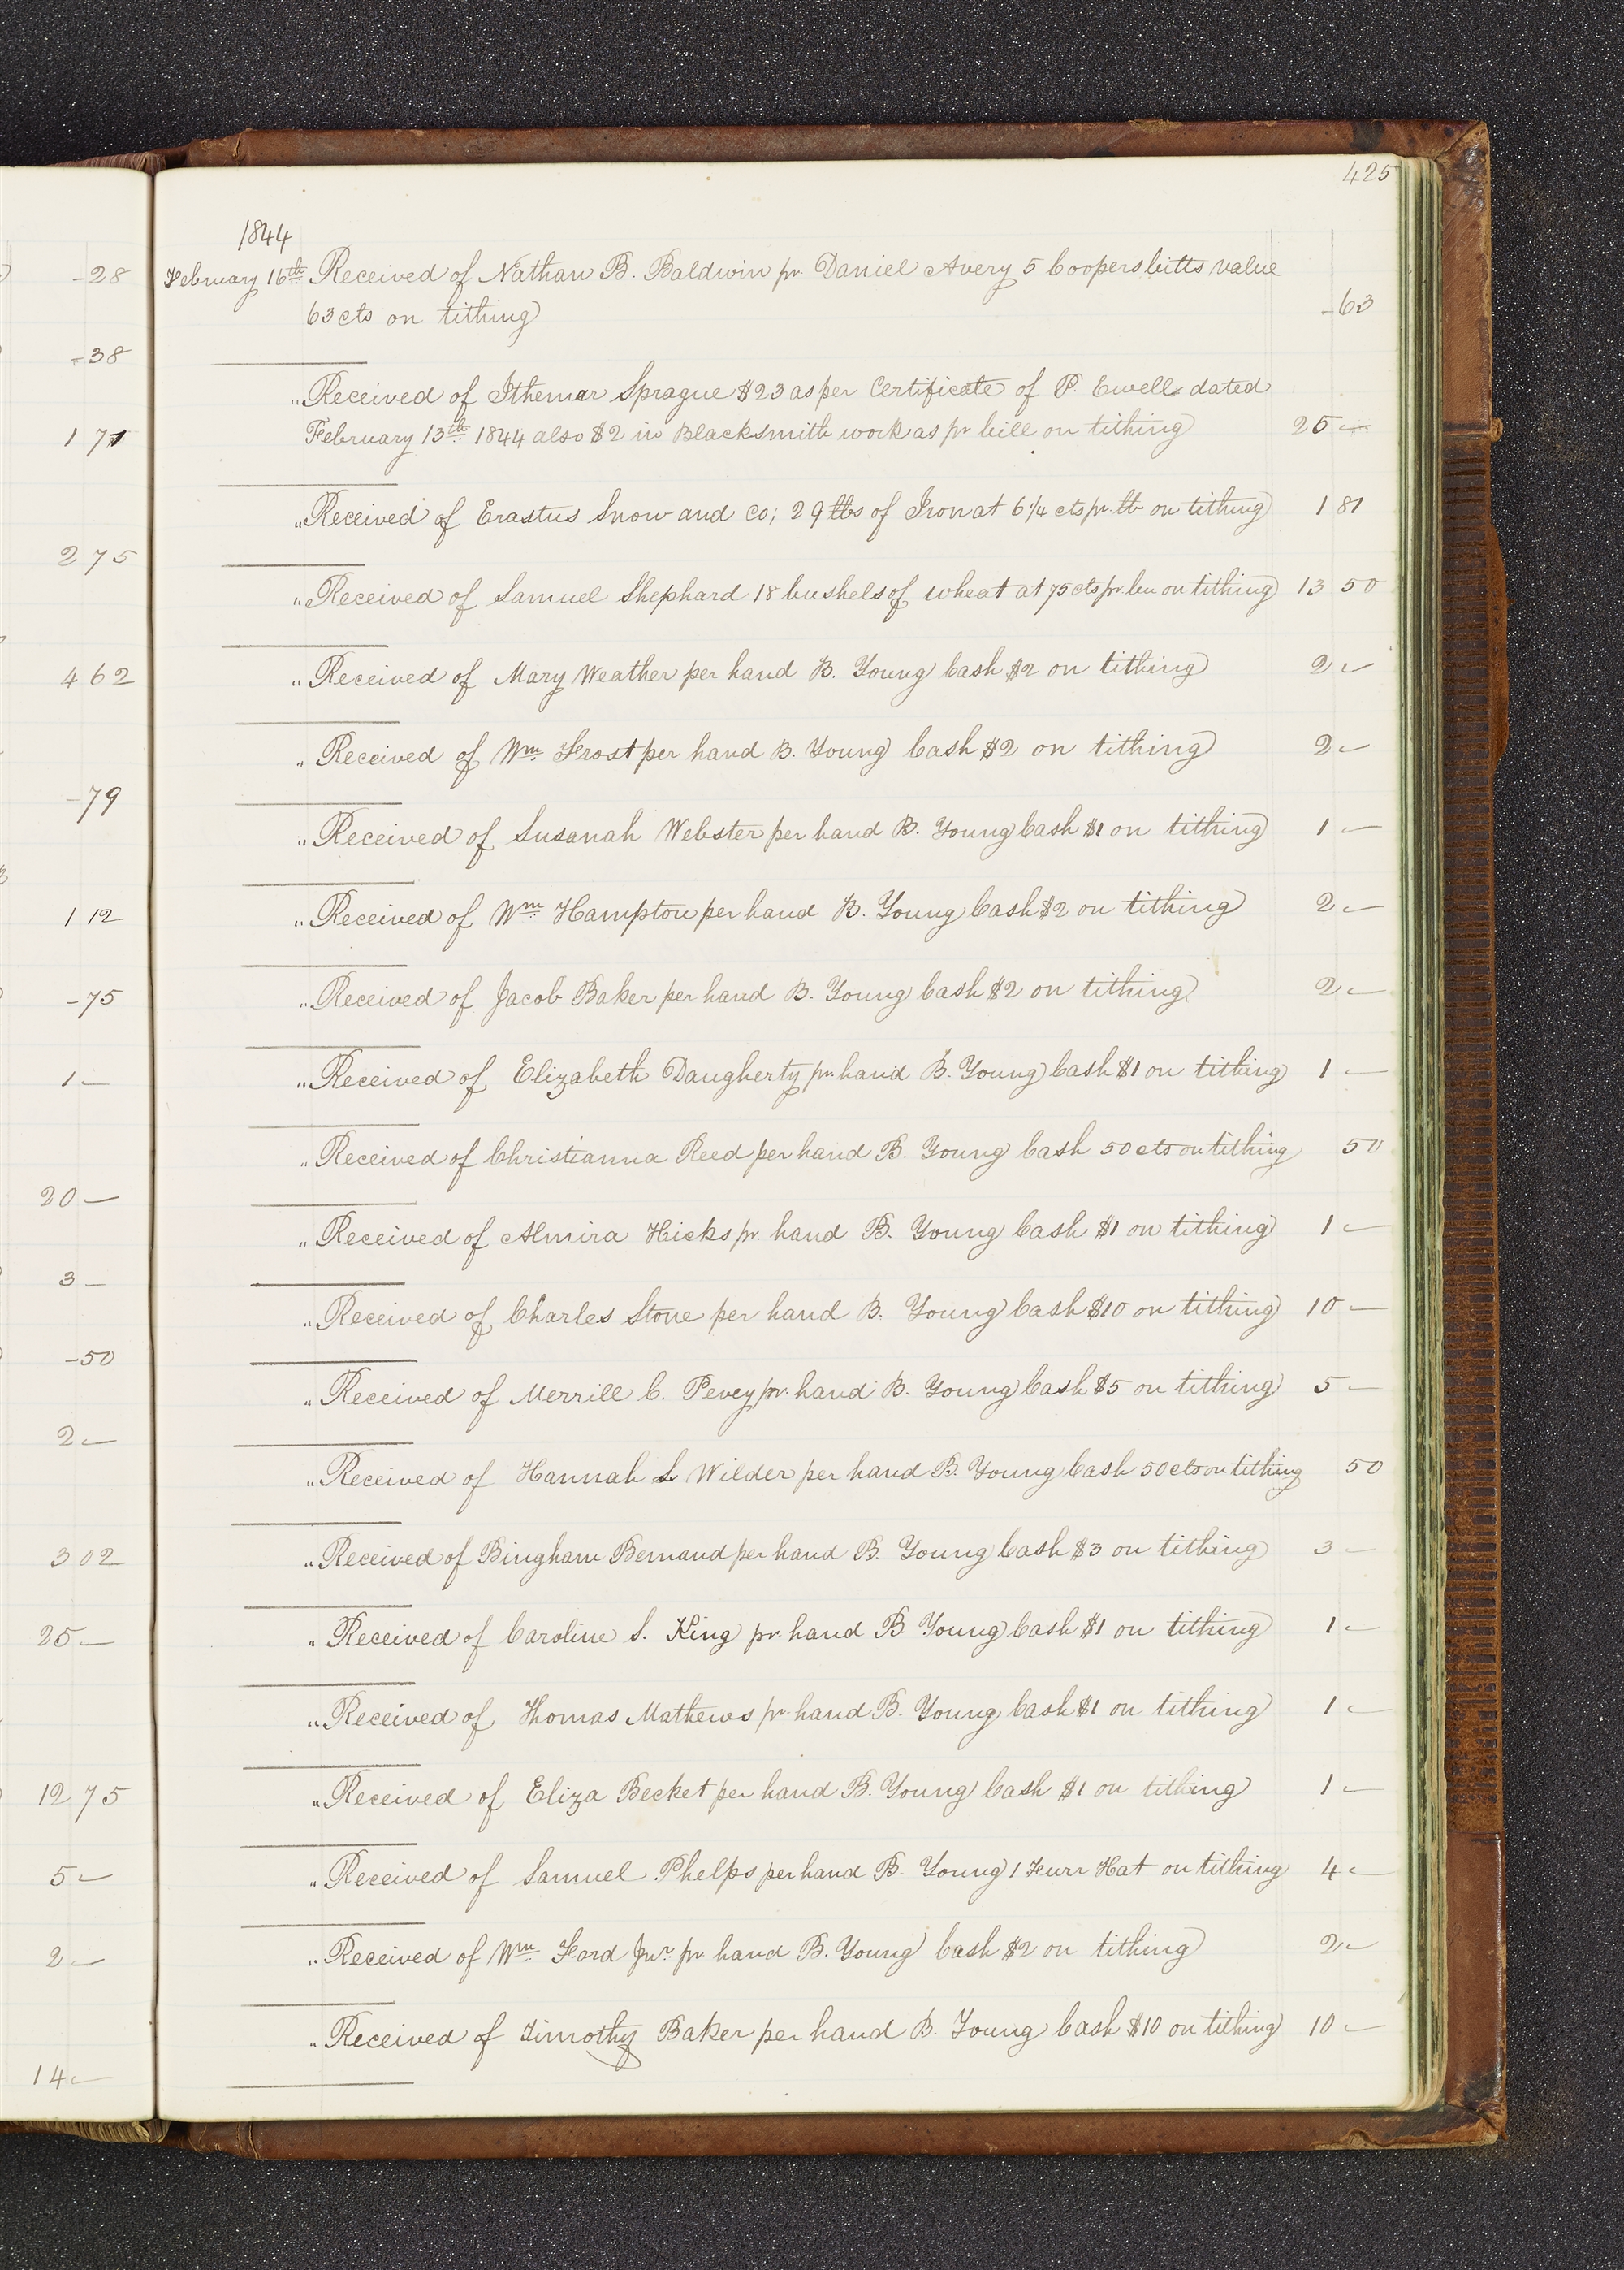 -28
-38
1 71
2 75
4 62
-79
1 12
-75
1 –
20 –
3 –
-50
2 –
3 02
25 –
12 75
5 –
2 –
14 –
425
1844
February 16th Received of Nathan B. Baldwin pr Daniel Avery 5 Coopers bitts value
63 cts on tithing -63
" Received of Ithemar Sprague $23 as per Certificate of P. Ewell dated
February 13th 1844 also $2 in Blacksmith work as pr bill on tithing 25 –
" Received of Erastus Snow and Co; 29 lbs of Iron at 6¼ cts pr. lb on tithing 1 81
" Received of Samuel Shephard 18 bushels of wheat at 75 cts pr. bu on tithing 13 50
" Received of Mary Weather per hand B. Young Cash $2 on tithing 2 –
" Received of Wm Frost per hand B. Young Cash $2 on tithing 2 –
" Received of Susanah Webster per hand B. Young Cash $1 on tithing 1 –
" Received of Wm Hampton per hand B. Young Cash $2 on tithing 2 –
" Received of Jacob Baker per hand B. Young Cash $2 on tithing 2 –
" Received of Elizabeth Daugherty pr. hand B. Young Cash $1 on tithing 1 –
" Received of Christianna Reed per hand B. Young Cash 50 cts on tithing 50
" Received of Almira Hicks pr. hand B. Young Cash $1 on tithing 1 –
" Received of Charles Stone per hand B. Young Cash $10 on tithing 10 –
" Received of Merrill C. Pevey pr. hand B. Young Cash $5 on tithing 5 –
" Received of Hannah L Wilder per hand B. Young Cash 50 cts on tithing 50
" Received of Bingham Bernand per hand B. Young Cash $3 on tithing 3 –
" Received of Caroline S. King pr. hand B. Young Cash $1 on tithing 1 –
" Received of Thomas Mathews pr. hand B. Young Cash $1 on tithing 1 –
" Received of Eliza Becket per hand B. Young Cash $1 on tithing 1 –
" Received of Samuel Phelps per hand B. Young 1 Furr Hat on tithing 4 –
" Received of Wm Ford Jnr. pr hand B. Young Cash $2 on tithing 2 –
" Received of Timothy Baker per hand B. Young Cash $10 on tithing 10 –